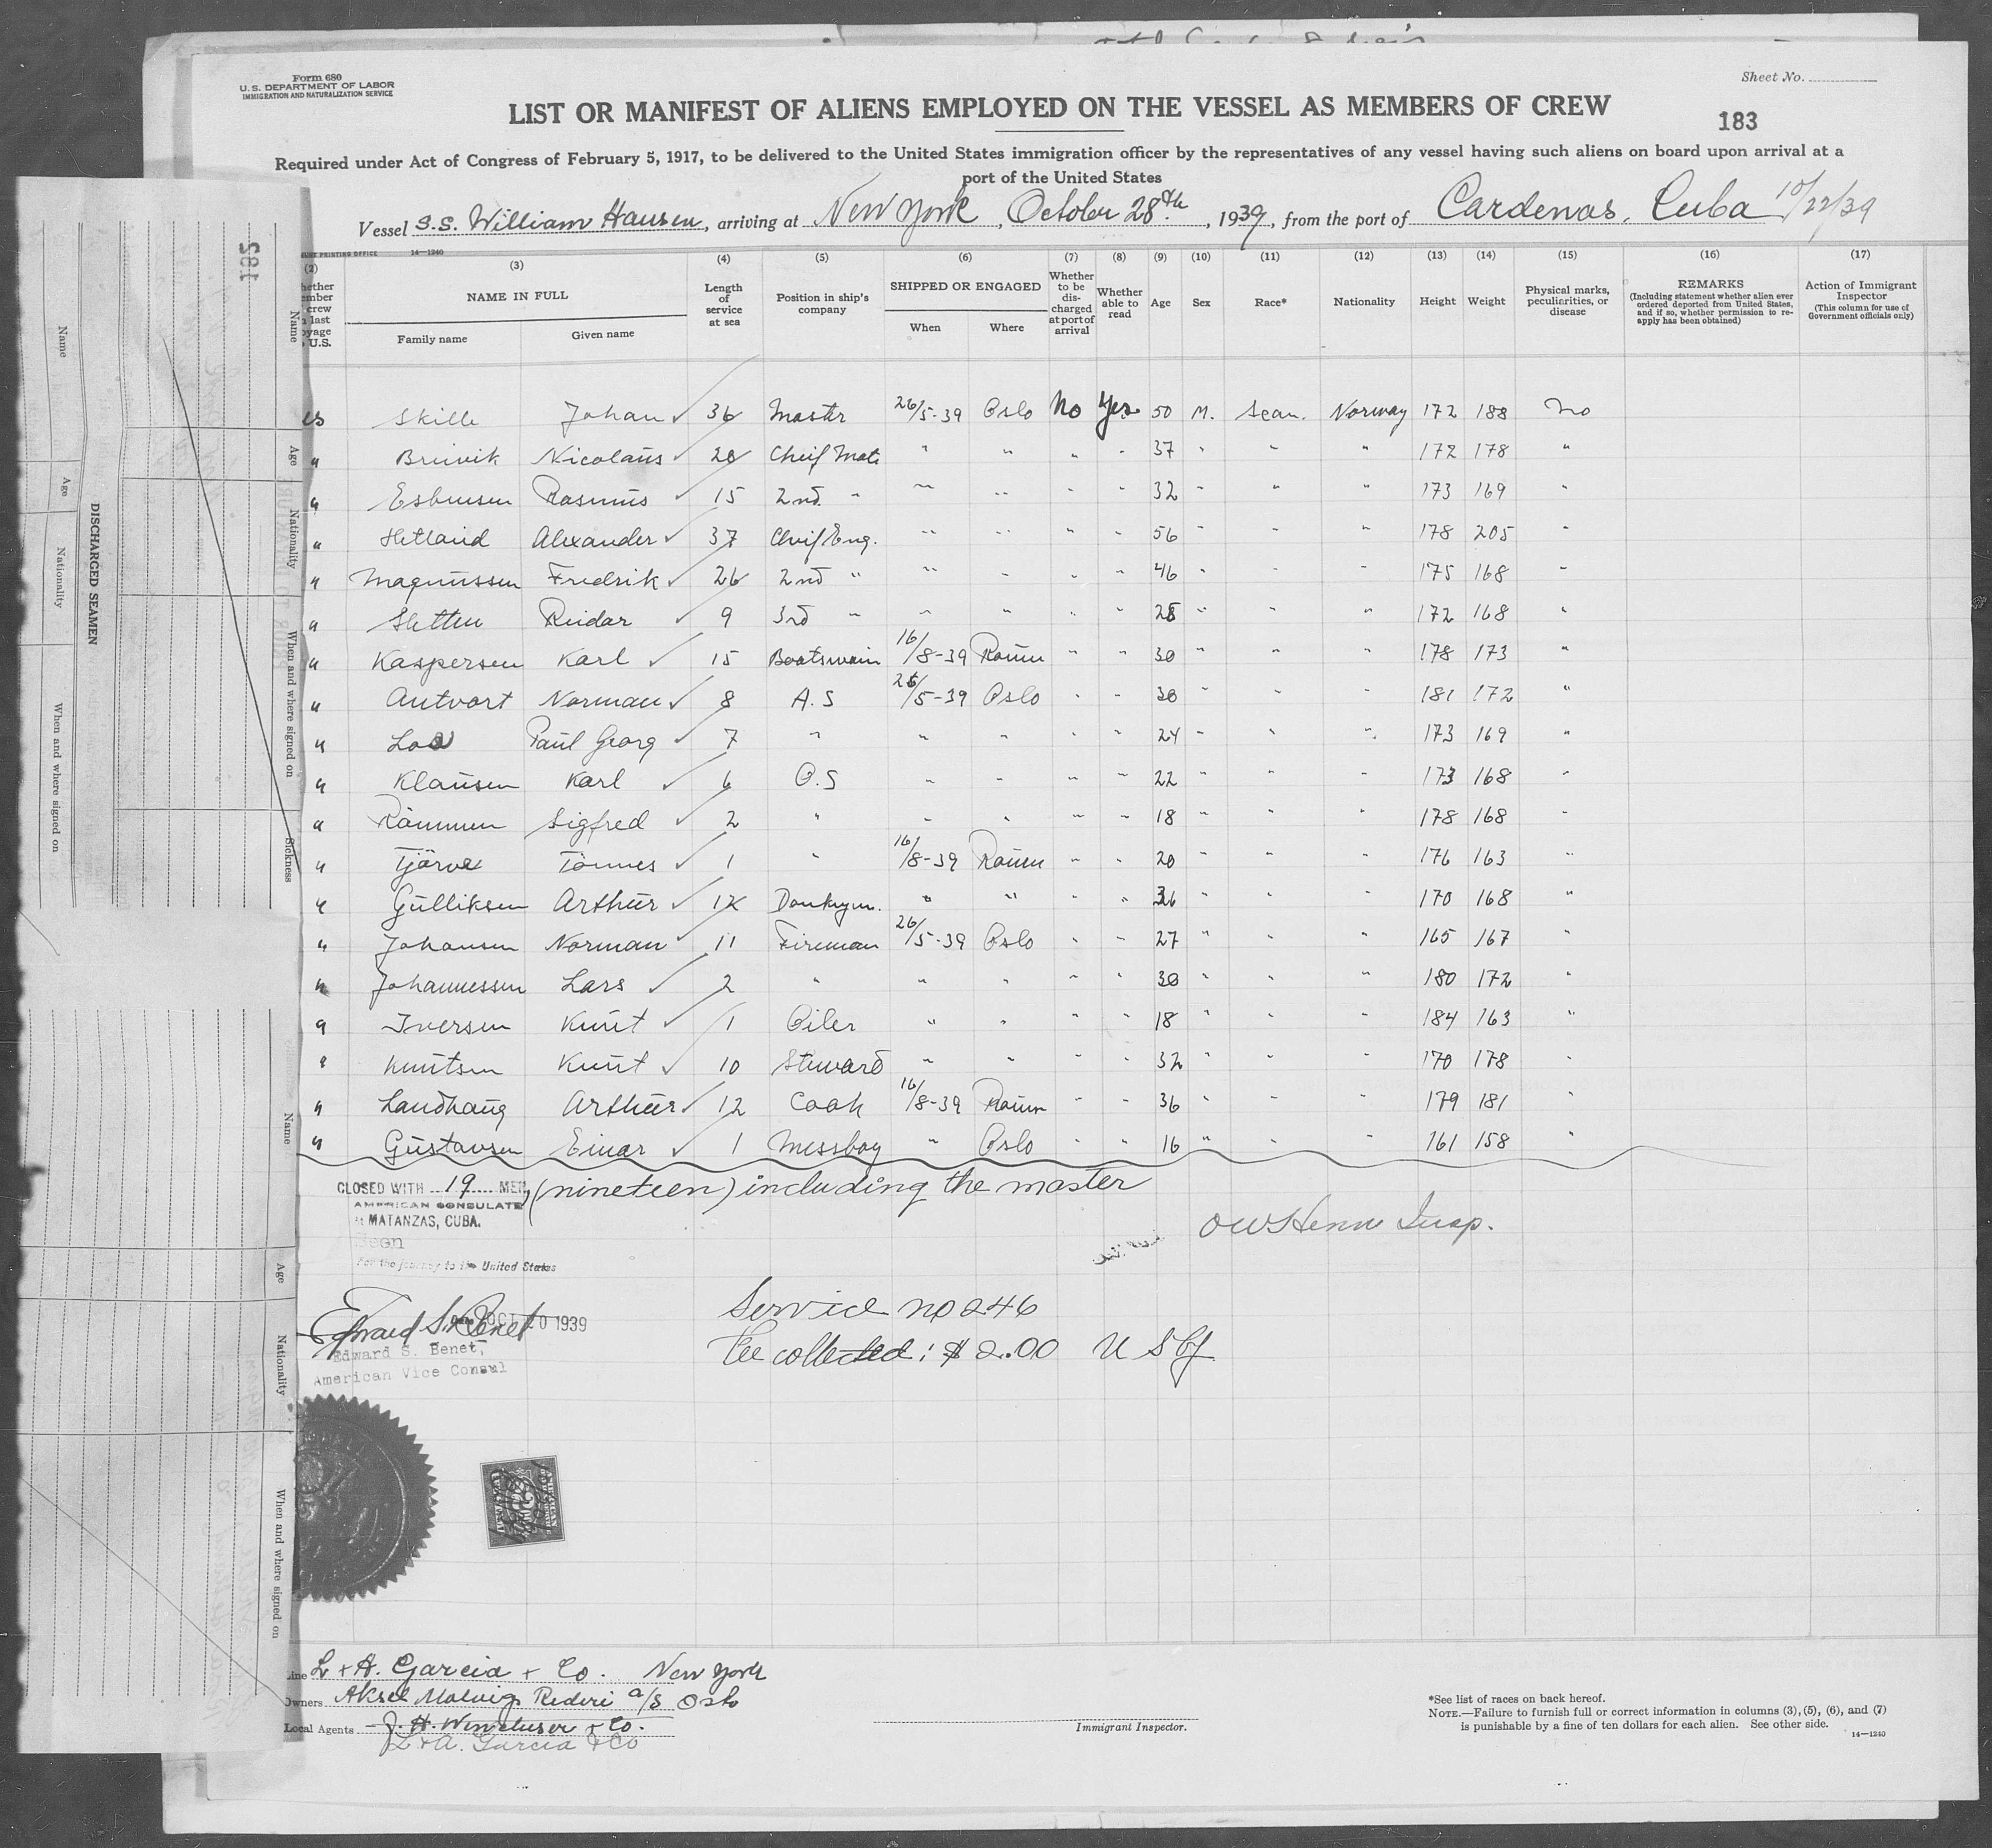 Form 680
U. S. DEPARTMENT OF LABOR
IMMIGRATION AND NATURALIZATION SERVICE
Sheet No.
LIST OR MANIFEST OF ALIENS EMPLOYED ON THE VESSEL AS MEMBERS OF CREW
183
Required under Act of Congress of February 5, 1917, to be delivered to the United States immigration officer by the representatives of any vessel having such aliens on board upon arrival at a
port of the United States
Vessel S.S. William Hansen, arriving at New York, October 28th, 1939, from the port of Cardenas, Cuba 10/22/39
PRINTING OFFICE 14—1240
(2) (3) (4) (5) (6) (7) (8) (9) (10) (11) (12) (13) (14) (15) (16) (17)
NAME IN FULL
Family name Given name
Length of service at sea
Position in ship's company
SHIPPED OR ENGAGED
When Where
Whether to be discharged at port of arrival
Whether able to read
Age
Sex
Race*
Nationality
Height
Weight
Physical marks, peculiarities, or disease
REMARKS
(Including statement whether alien ever ordered deported from United States, and if so, whether permission to re-apply has been obtained)
Action of Immigrant Inspector
(This column for use of Government officials only)
Skille Johan 36 Master 26/5-39 Oslo No Yes 50 M. Scan. Norway 172 188 No
" Breivik Nicolaus 20 Cheif Mate " " " " 37 " " " 172 178 "
" Esbensen Rasmus 15 2nd " " " " " 32 " " " 173 169 "
" Hetland Alexander 37 Cheif Eng. " " " " 56 " " " 178 205 "
" Magnussen Fredrik 26 2nd " " " " " 46 " " " 175 168 "
" Sletten Reidar 9 3rd " " " " " 28 " " " 172 168 "
" Kaspersen Karl 15 Boatswain 16/8-39 Rouen " " 30 " " " 178 173 "
" Antvort Norman 8 A.S 26/5-39 Oslo " " 30 " " " 181 172 "
" Paul Georg 7 " " " " " 24 " " " 173 169 "
" Klausen Karl 6 O.S " " " " 22 " " " 173 168 "
" Sigfred 2 " " " " " 18 " " " 178 168 "
" Tjörve Tönnes 1 " 16/8-39 Rouen " " 20 " " " 176 163 "
" Gulliksen Arthur 12 Donkeym. " " " " 36 " " " 170 168 "
" Johansen Norman 11 Fireman 26/5-39 Oslo " " 27 " " " 165 167 "
" Johannessen Lars 2 " " " " " 30 " " " 180 172 "
" Iversen Knut 1 Oiler " " " " 18 " " " 184 163 "
" Knutsen Knut 10 Steward " " " " 32 " " " 170 178 "
" Landhaug Arthur 12 Cook 16/8-39 Rouen " " 36 " " " 179 181 "
" Gustavsen Einar 1 Messboy " Oslo " " 16 " " " 161 158 "
CLOSED WITH 19 MEN, (nineteen) including the master
AMERICAN CONSULATE
at MATANZAS, CUBA.
Seen
For the journey to the United States
Insp.
Edward S. Benet OCT 20 1939
Edward S. Benet,
American Vice Consul
Service no 246
Fee collected: $2.00 U S Cy
Line L + A. Garcia + Co. New York
Owners Aksel Rederi a/s Oslo
Local Agents J. H. Winchester & Co.
L + A. Garcia & Co
Immigrant Inspector.
*See list of races on back hereof.
NOTE.—Failure to furnish full or correct information in columns (3), (5), (6), and (7)
is punishable by a fine of ten dollars for each alien. See other side.
14—1240
185
DISCHARGED SEAMEN
Name
Age
Nationality
When and where signed on
Name
Age
Nationality
When and where signed on
Sickness
Name
Age
Nationality
When and where signed on